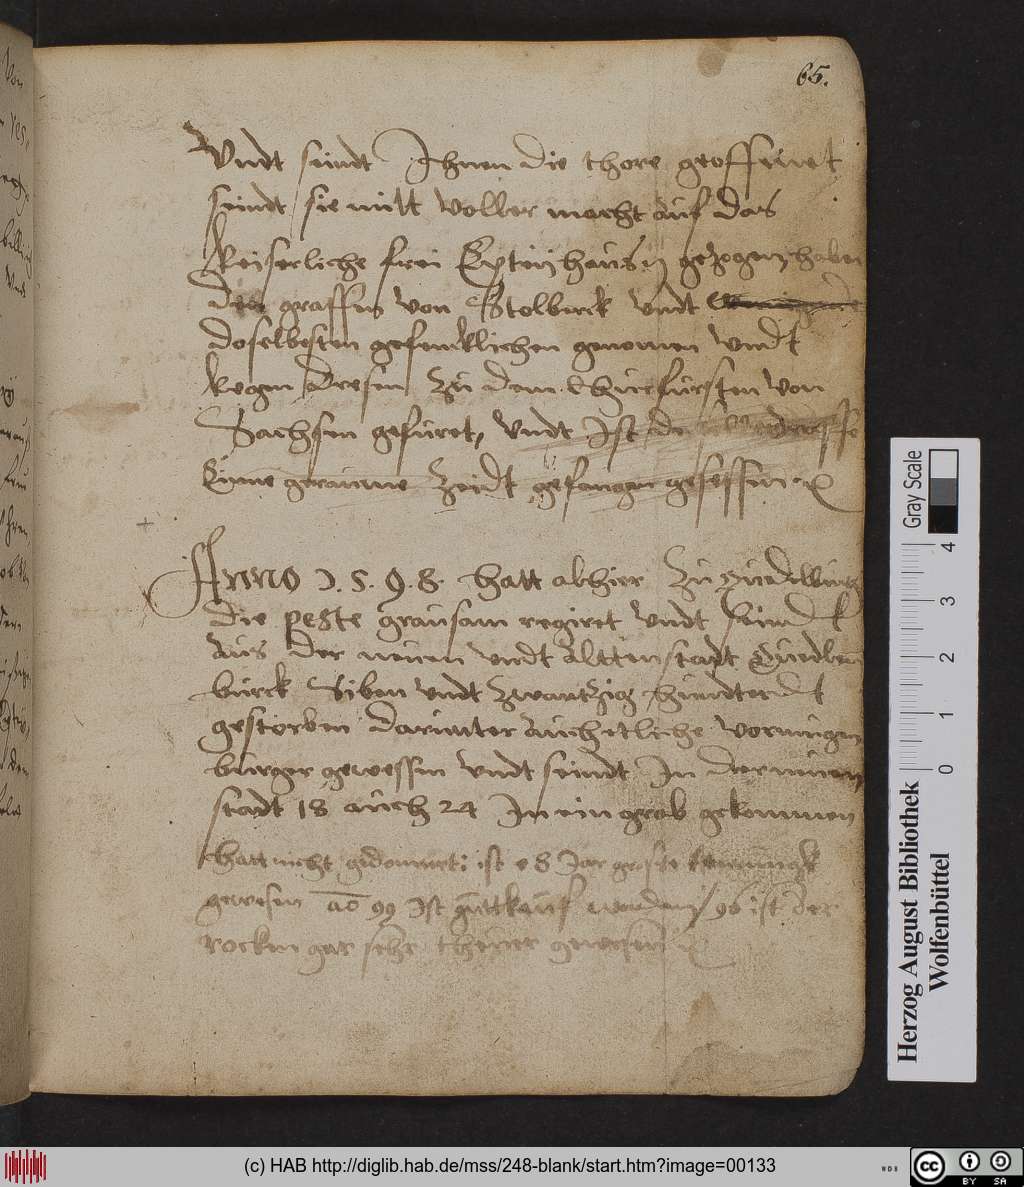 65.
Vndt seindt Ihnen die thore geoffenet
seindt sie mitt voller macht auf das
keiserliche frei Eptey haus gezogen haben
den graffen von Stolberck vndt
doselbesten gefencklichen genomen vndt
kegen Dresen zu dem Churfursten von
Sachsen gefuret, vndt Ist
Eyne geraume Zeidt gefangen gesessen
Anno 1.5.9.8. hatt alhier zu Quedelinb
die peste grausam regiret vndt seindt
aus der neuen vndt altten stadt Quedlen
burck Siben vndt zwantzig hundterdt
gestorben darunter auch etliche vornemen
burger gewessen vndt seindt In der neuen
stadt 18 auch 24 In ein grab gekommen
hatt nicht gedonnert: ist 98 Jar
gewesen ao 99 Ist guttkauf worden 98 ist der
rocken gar sehr theuer gewesen
Gray Scale
0 1 2 3 4
Herzog August Bibliothek
Wolfenbüttel
(c) HAB http://diglib.hab.de/mss/248-blank/start.htm?image=00133
WDB
cc BY SA